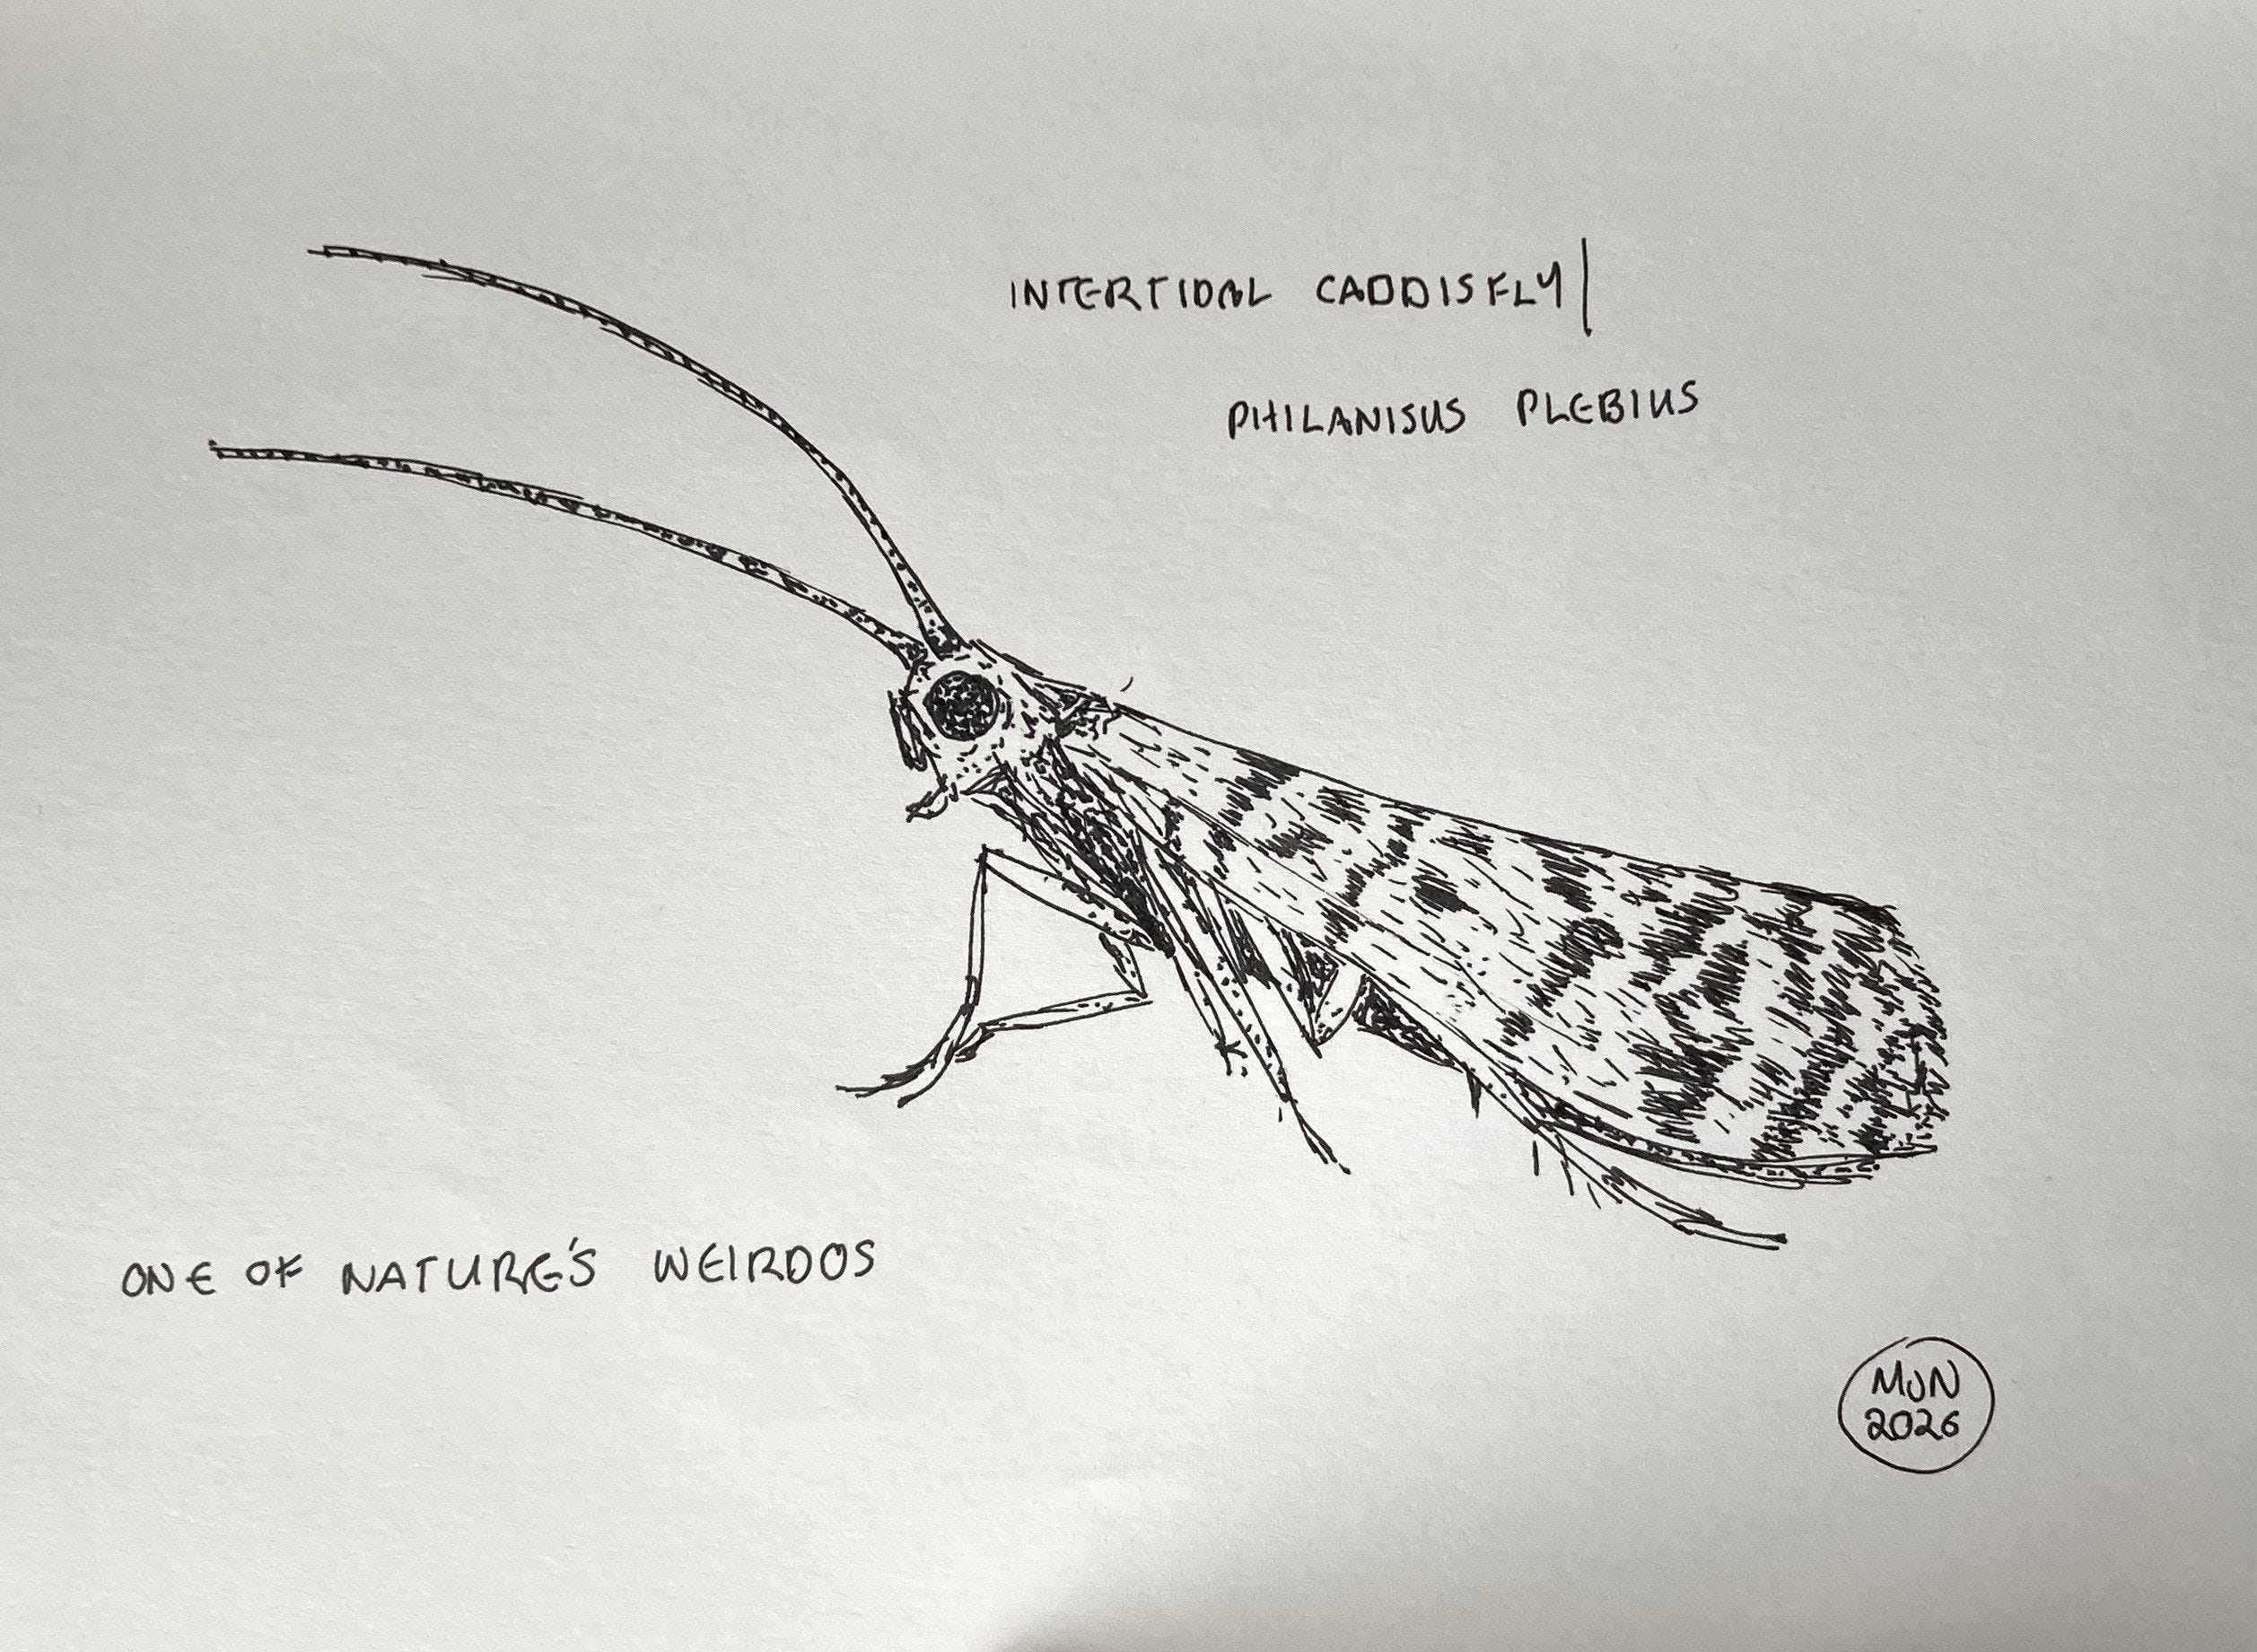 INTERTIDAL CADDISFLY|
PHILANISUS PLEBIUS
ONE OF NATURE'S WEIRDOS
MJN
2026